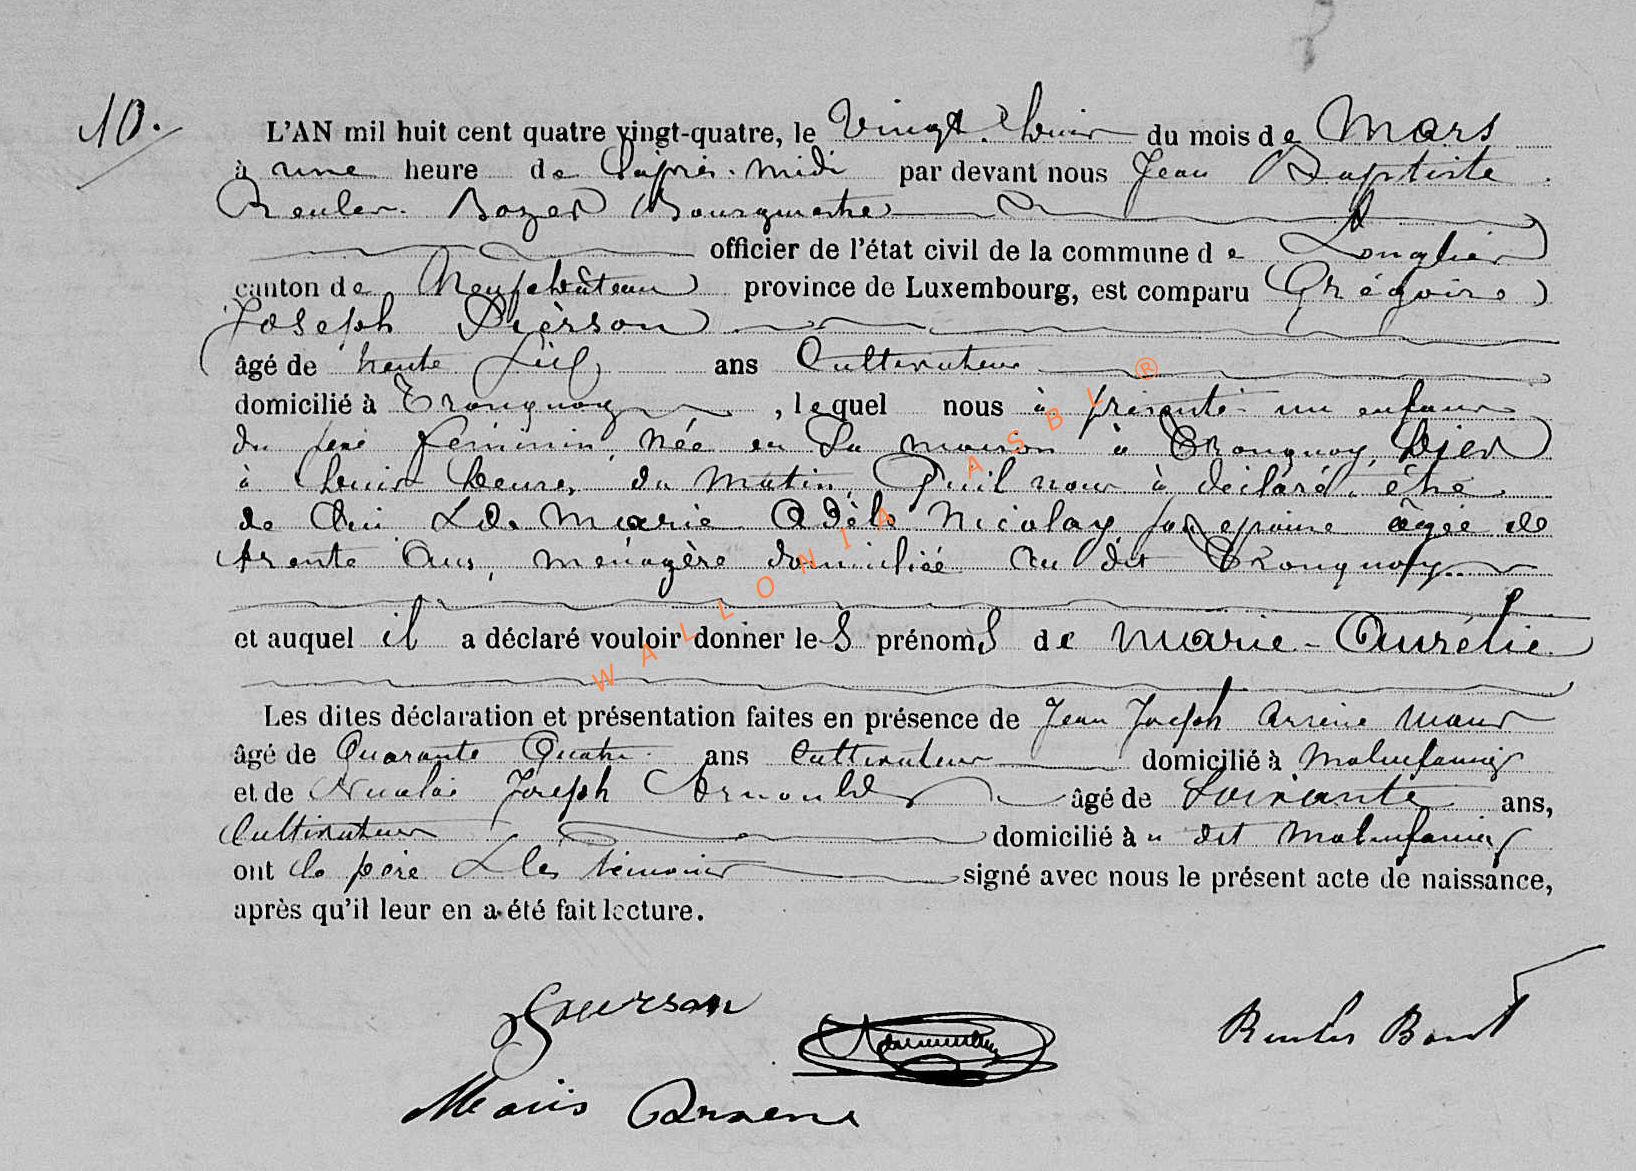 10.
L'AN mil huit cent quatre vingt-quatre, le Vingt-huit du mois de Mars
à une heure de l'après-midi par devant nous Jean Baptiste
Reuler Bourgmestre
officier de l'état civil de la commune de Longlier
canton de Neufchâteau province de Luxembourg, est comparu Grégoire
Joseph Pièrson
âgé de trente ans Cultivateur
domicilié à Tronquoy, lequel nous à présenté un enfant
du sexe féminin, née en sa maison à Tronquoy, hier
à huit heures du matin, qu'il nous à déclaré être
de lui & de Marie Adèle Nicolay son épouse âgée de
trente ans, ménagère domiciliée au dit Tronquoy
et auquel il a déclaré vouloir donner les prénoms de Marie-Aurélie
Les dites déclaration et présentation faites en présence de Jean Joseph Arsène Maus
âgé de Quarante Quatre ans Cultivateur domicilié à Molinfaing
et de Nicolas Joseph Arnould âgé de Soixante ans,
Cultivateur domicilié au dit Molinfaing
ont le père & les témoins signé avec nous le présent acte de naissance,
après qu'il leur en a été fait lecture.
Reuler
Arsene
WALLONIA ASBL ®